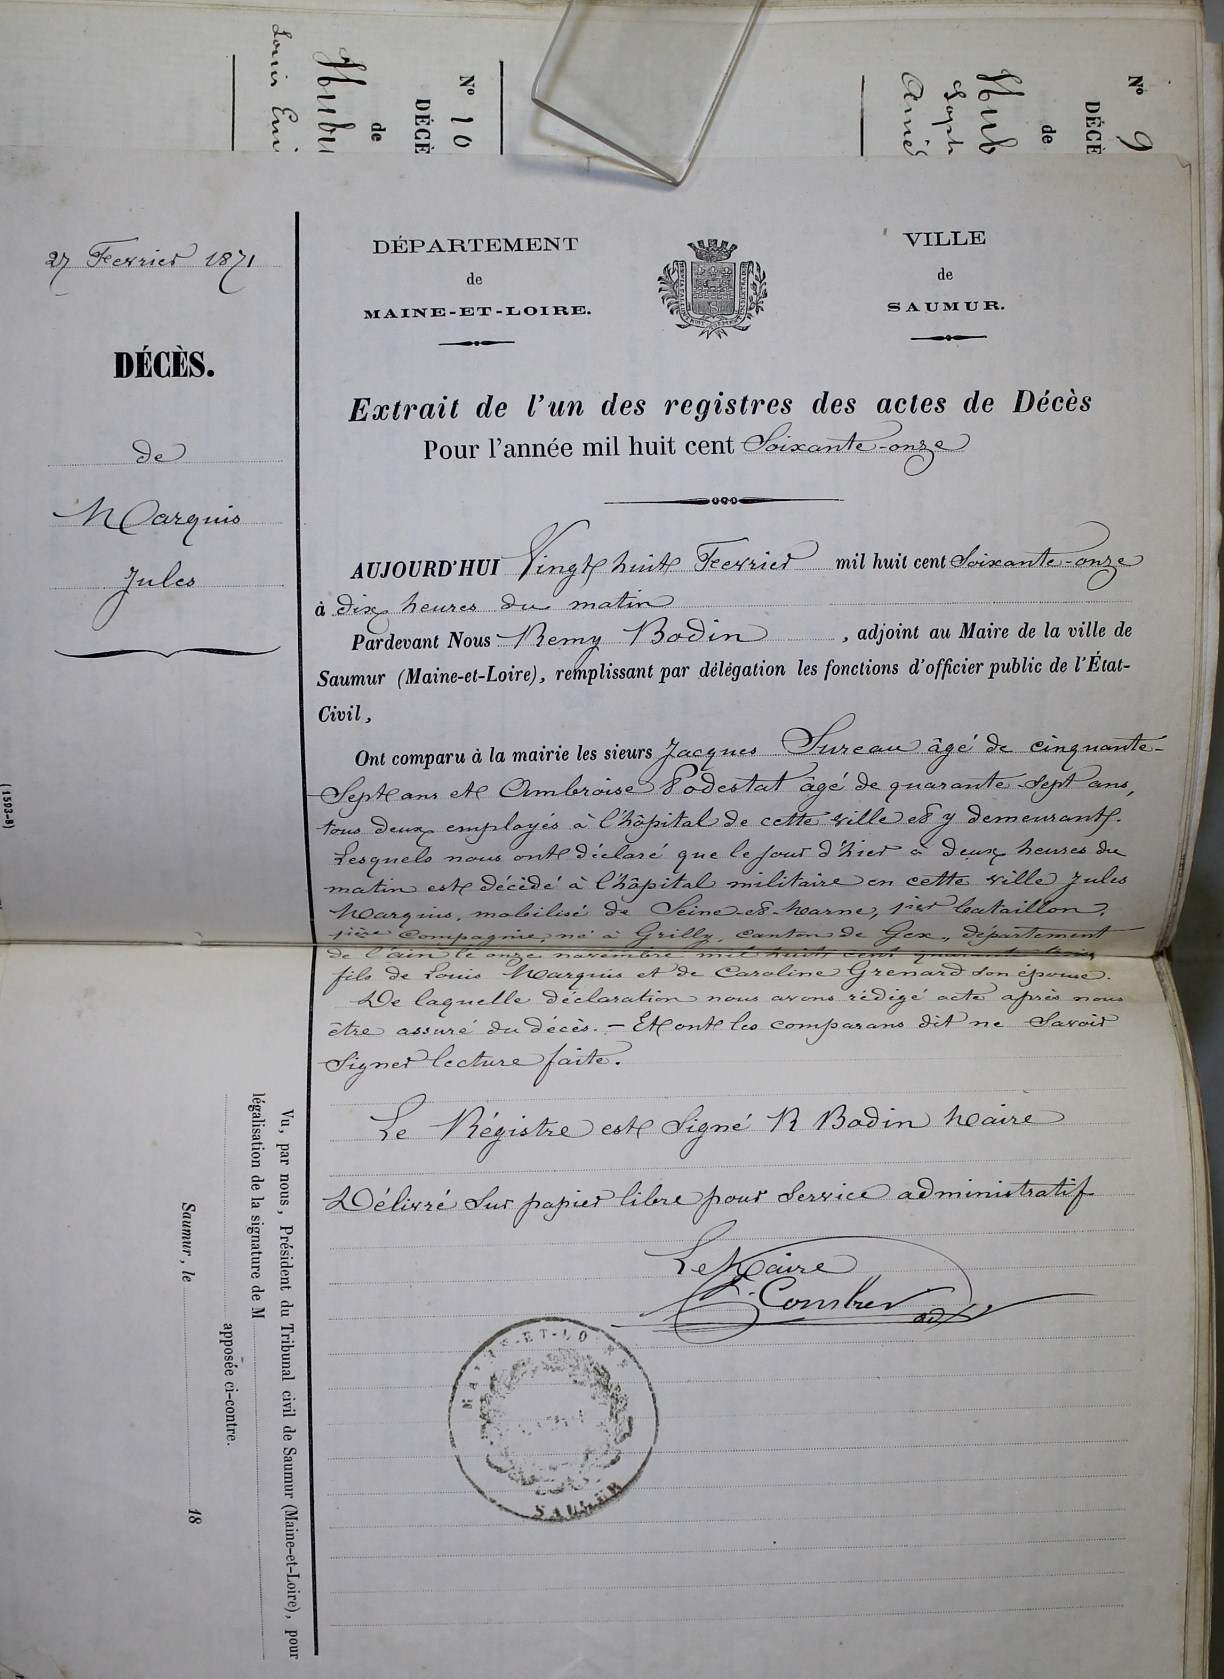 N° 10
DÉCÈ
de
Hubu
Louis Eui
N° 9
DÉCÈ
de
Hub
Soph
Amé
27 Fevrier 1871
DÉCÈS.
de
Marquis
Jules
DÉPARTEMENT
de
MAINE-ET-LOIRE.
VILLE
de
SAUMUR.
Extrait de l'un des registres des actes de Décès
Pour l'année mil huit cent Soixante-onze
AUJOURD'HUI Vingt huit Fevrier mil huit cent Soixante-onze
à dix heures du matin
Pardevant Nous Remy Bodin, adjoint au Maire de la ville de
Saumur (Maine-et-Loire), remplissant par délégation les fonctions d'officier public de l'État-
Civil,
Ont comparu à la mairie les sieurs Jacques Sureau âgé de cinquante-
Sept ans et Ambroise Podestat âgé de quarante-sept ans,
tous deux employés à l'hôpital de cette ville et y demeurant.
Lesquels nous ont déclaré que le jour d'hier à deux heures du
matin est décédé à l'hôpital militaire en cette ville Jules
Marquis, mobilisé de Seine-et-Marne, 1ier bataillon,
1ière Compagnie, né à Grilly, canton de Gex, département
de l'ain le onze novembre mil huit cent quarante trois
fils de Louis Marquis et de Caroline Grenard son épouse.
De laquelle déclaration nous avons rédigé acte après nous
être assuré du décès. - Et ont les comparans dit ne Savoir
Signer lecture faite.
Le Régistre est Signé R Bodin Maire
Délivré Sur papier libre pour Service administratif
Le Maire
Combier
adt
MAINE-ET-LOIRE
SAUMUR
Vu, par nous, Président du Tribunal civil de Saumur (Maine-et-Loire), pour
légalisation de la signature de M
apposée ci-contre.
Saumur, le 18
(1593-8)